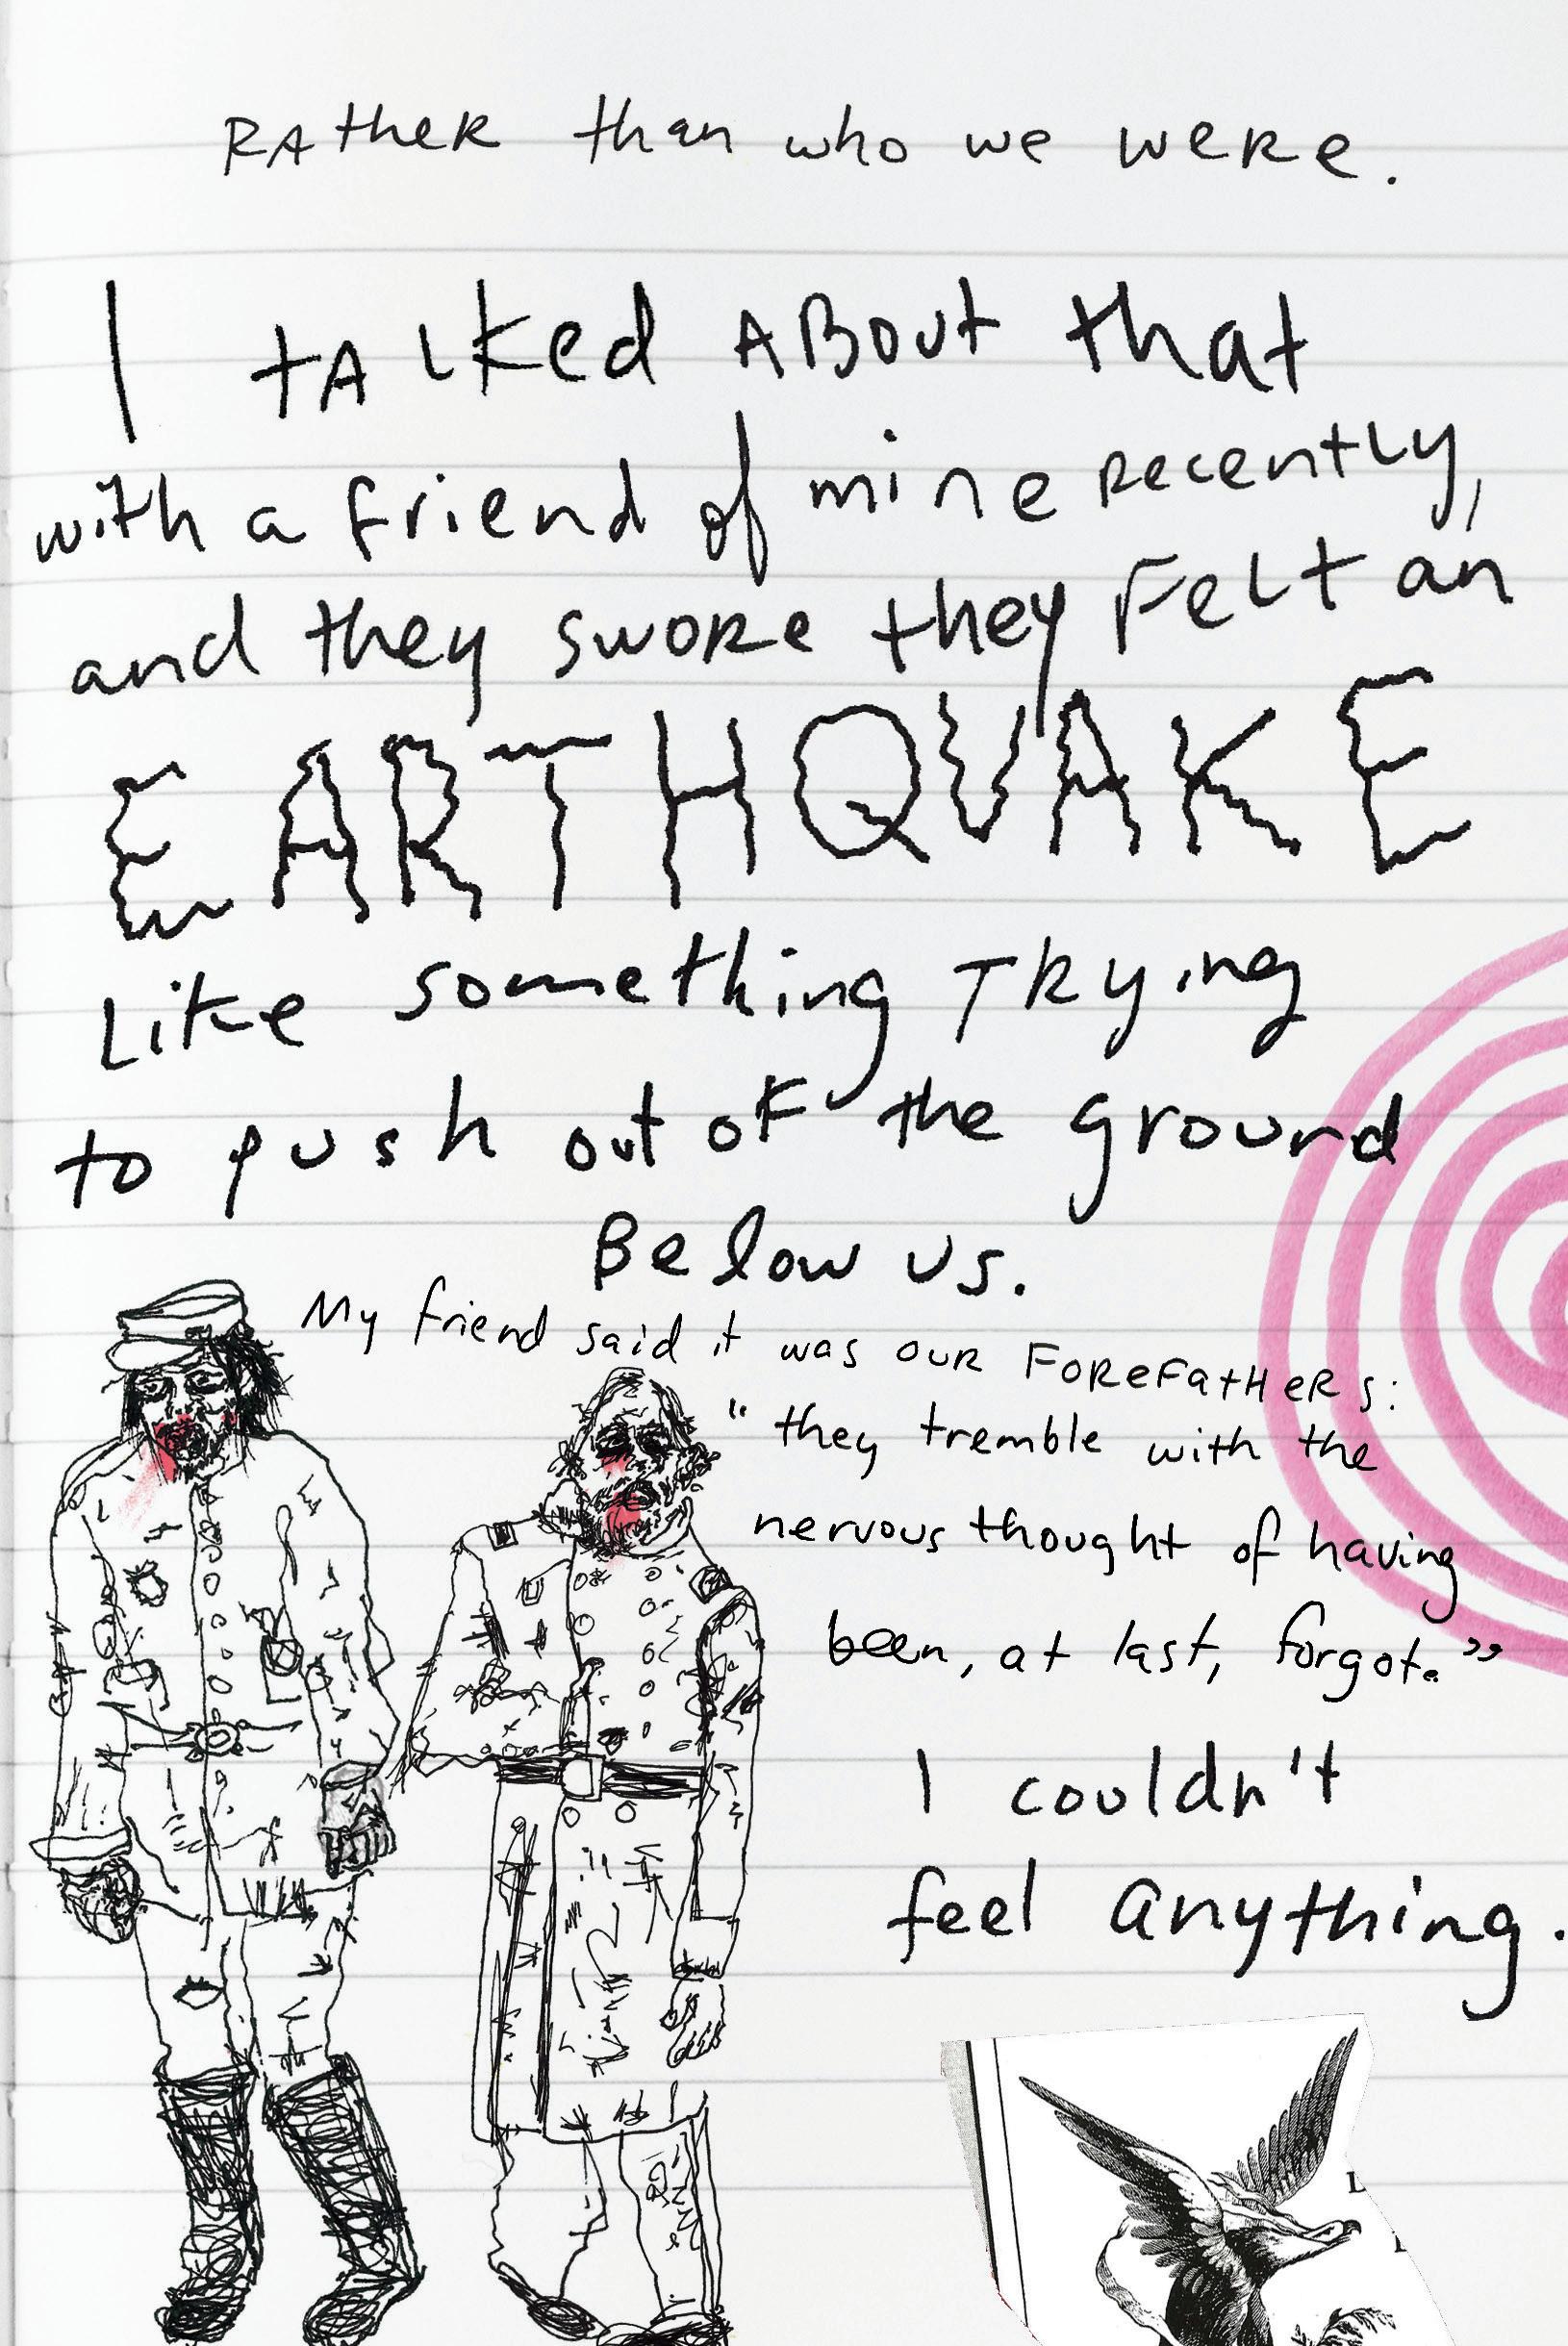 RATHER than who we were.
I talked about that
with a friend of mine recently,
and they swore they felt an
EARTHQUAKE
Like something trying
to push out of the ground
Below us.
My friend said it was our forefathers:
"they tremble with the
nervous thought of having
been, at last, forgot."
I couldn't
feel anything.